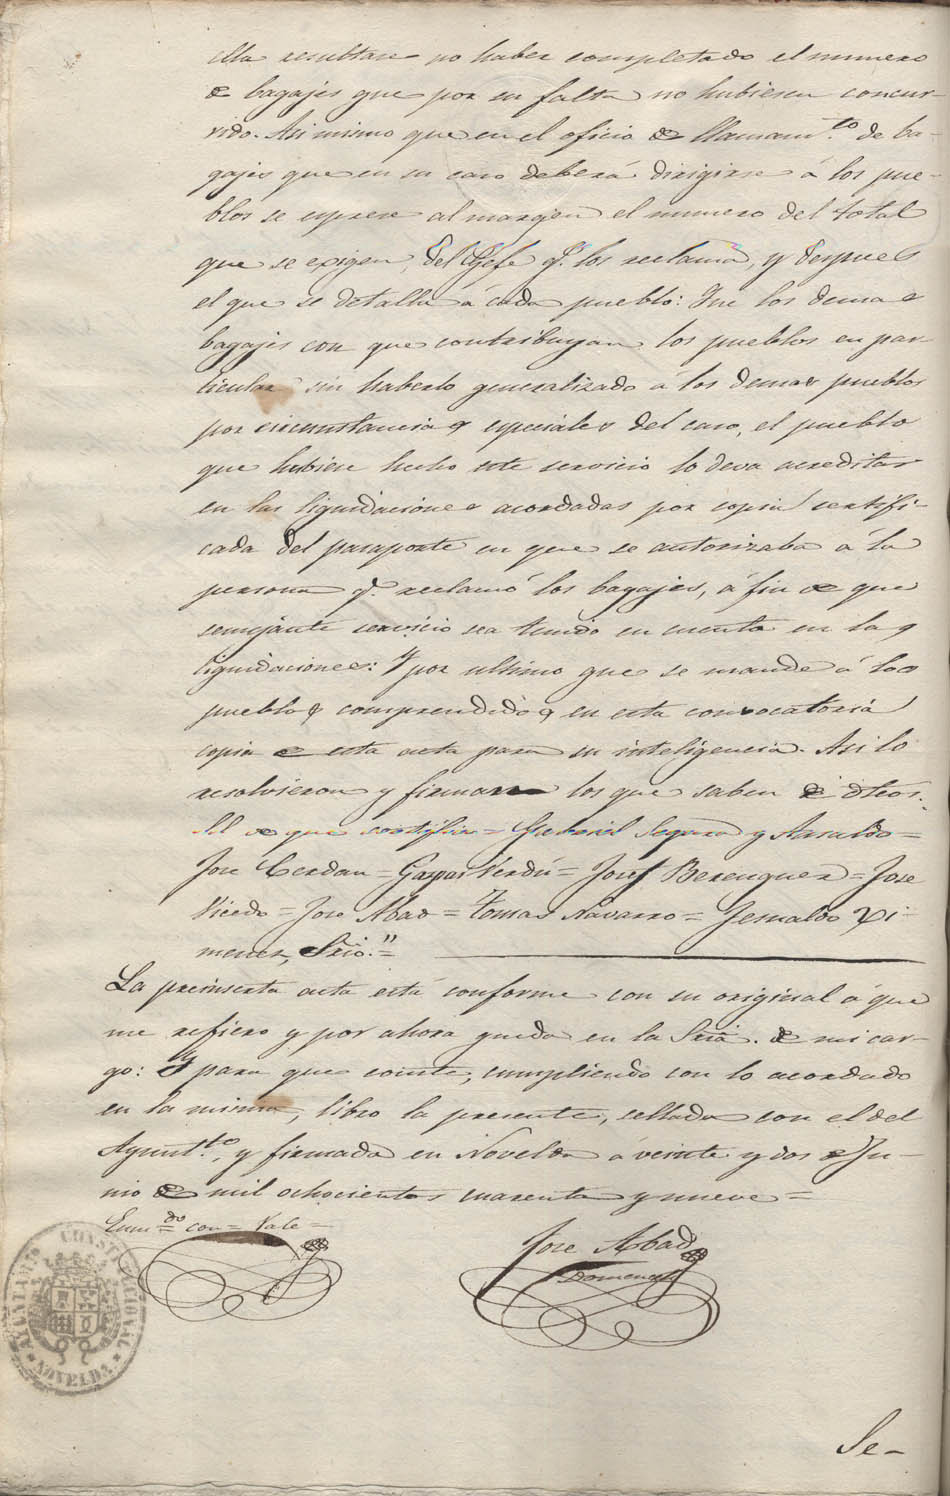 ella resultare no haber completado el numero
de bagajes que por su falta no hubiesen concur-
rido. Asi mismo que en el oficio de llamam.to de ba-
gajes que en su caso deberá dirigirse á los pue-
blos se esprese al margen el numero del total
que se exigen, del Gefe q.e los reclama, y despues
el que se detalla á cada pueblo: Que los demas
bagajes con que contribuyan los pueblos en par-
ticular sin haberlo generalizado á los demas pueblos
por circunstancias especiales del caso, el pueblo
que hubiere hecho este servicio lo deva acreditar
en las liquidaciones acordadas por copia certifi-
cada del pasaporte en que se autorizaba á la
persona q.e reclamó los bagajes, á fin de que
semejante servicio sea tenido en cuenta en las
liquidaciones: Y por ultimo que se mande á los
pueblos comprendidos en esta convocatoria
copia de esta acta para su inteligencia. Asi lo
resolvieron y firman los que saben de dhos.
S.S. de que certifico = Gabriel Segura y Asnaldo =
José Cerdan = Gaspar Verdú = Josef Berenguer = Jose
Vicedo = Jose Abad = Tomas Navarro = Jenaldo Xi-
menez, Srio." =
La preinserta acta está conforme con su original á que
me refiero y por ahora queda en la Sria. de mi car-
go: Y para que conste, cumpliendo con lo acordado
en la misma, libro la presente, sellada con el del
Ayunt.to, y firmada en Novelda á veinte y dos de Ju-
nio de mil ochocientos cuarenta y nueve =
Enm.do con = Vale =
Jose Abad
Domenech
AYUNTAMIENTO CONSTITUCIONAL
NOVELDA
Se-